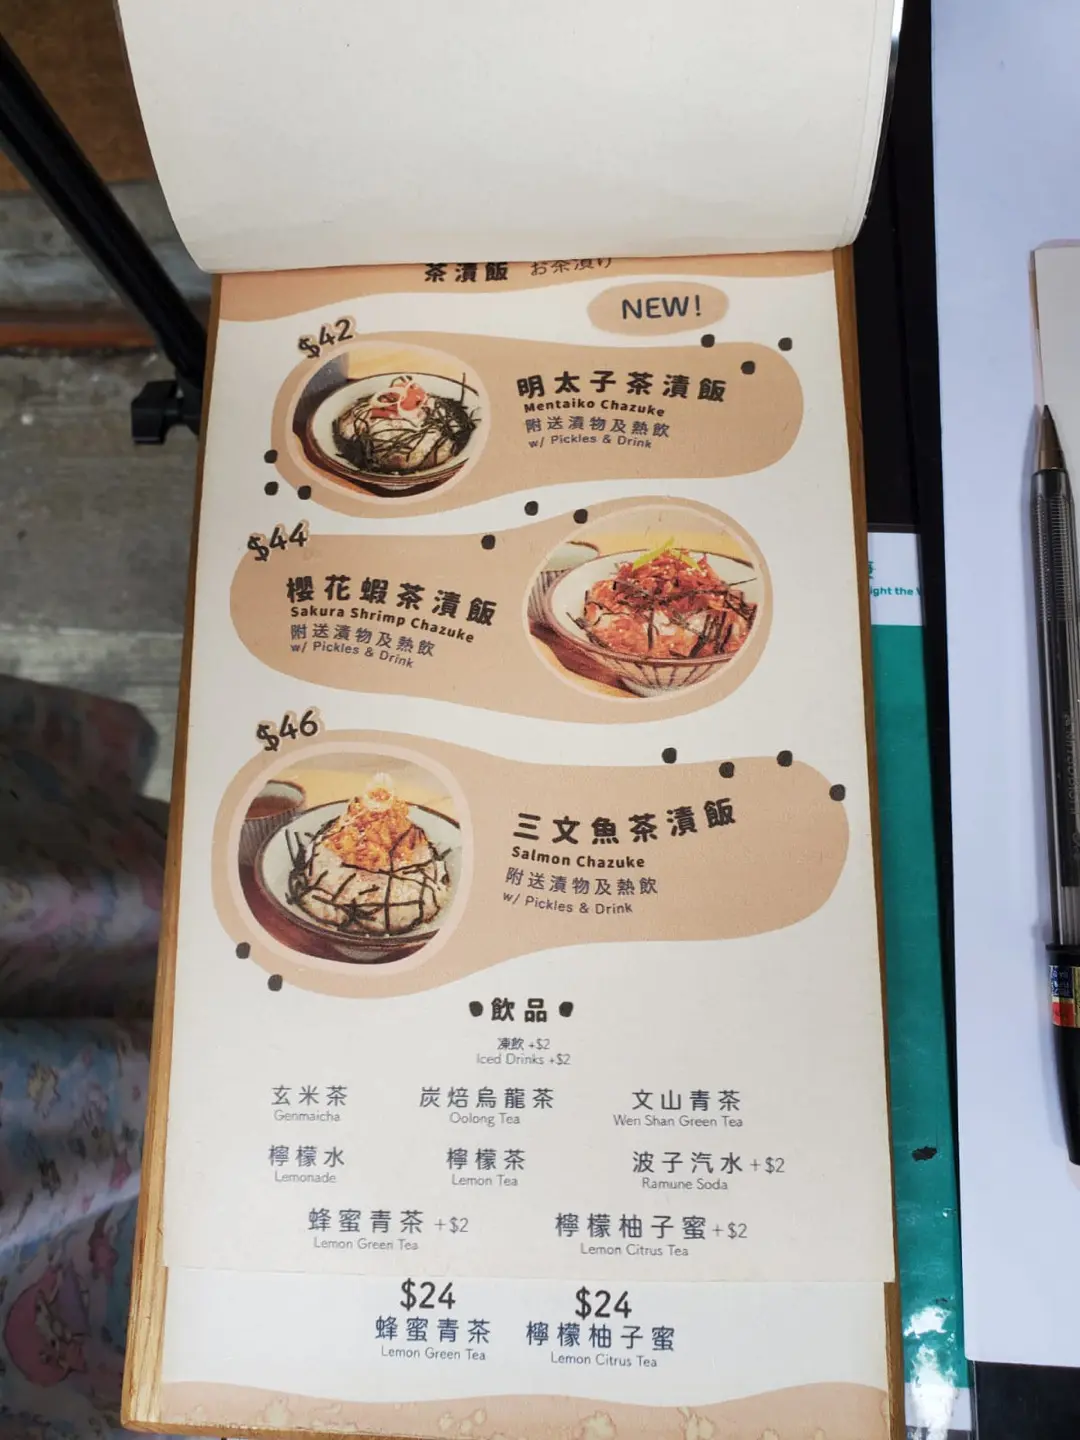 茶漬飯 お茶漬け
NEW!
$42
明太子茶漬飯
Mentaiko Chazuke
附送漬物及熱飲
w/ Pickles & Drink
$44
櫻花蝦茶漬飯
Sakura Shrimp Chazuke
附送漬物及熱飲
w/ Pickles & Drink
$46
三文魚茶漬飯
Salmon Chazuke
附送漬物及熱飲
w/ Pickles & Drink
飲品
凍飲 +$2
Iced Drinks +$2
玄米茶
Genmaicha
炭焙烏龍茶
Oolong Tea
文山青茶
Wen Shan Green Tea
檸檬水
Lemonade
檸檬茶
Lemon Tea
波子汽水 +$2
Ramune Soda
蜂蜜青茶 +$2
Lemon Green Tea
檸檬柚子蜜 +$2
Lemon Citrus Tea
$24
蜂蜜青茶
Lemon Green Tea
$24
檸檬柚子蜜
Lemon Citrus Tea
ight the